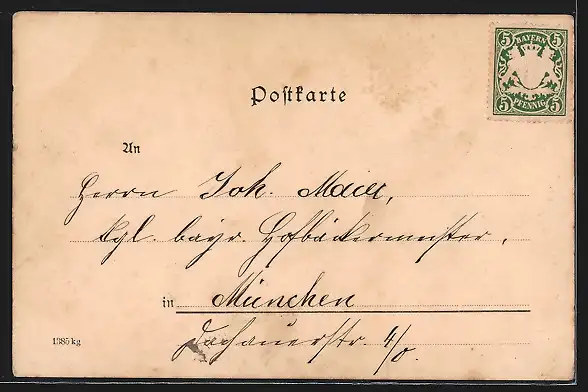 5 BAYERN 5
5 PFENNIG 5
Postkarte
An
Herrn Joh. Maier,
kgl. bayr. Hofbäckermeister,
in München
Dachauerstr. 4/0.
1385 kg